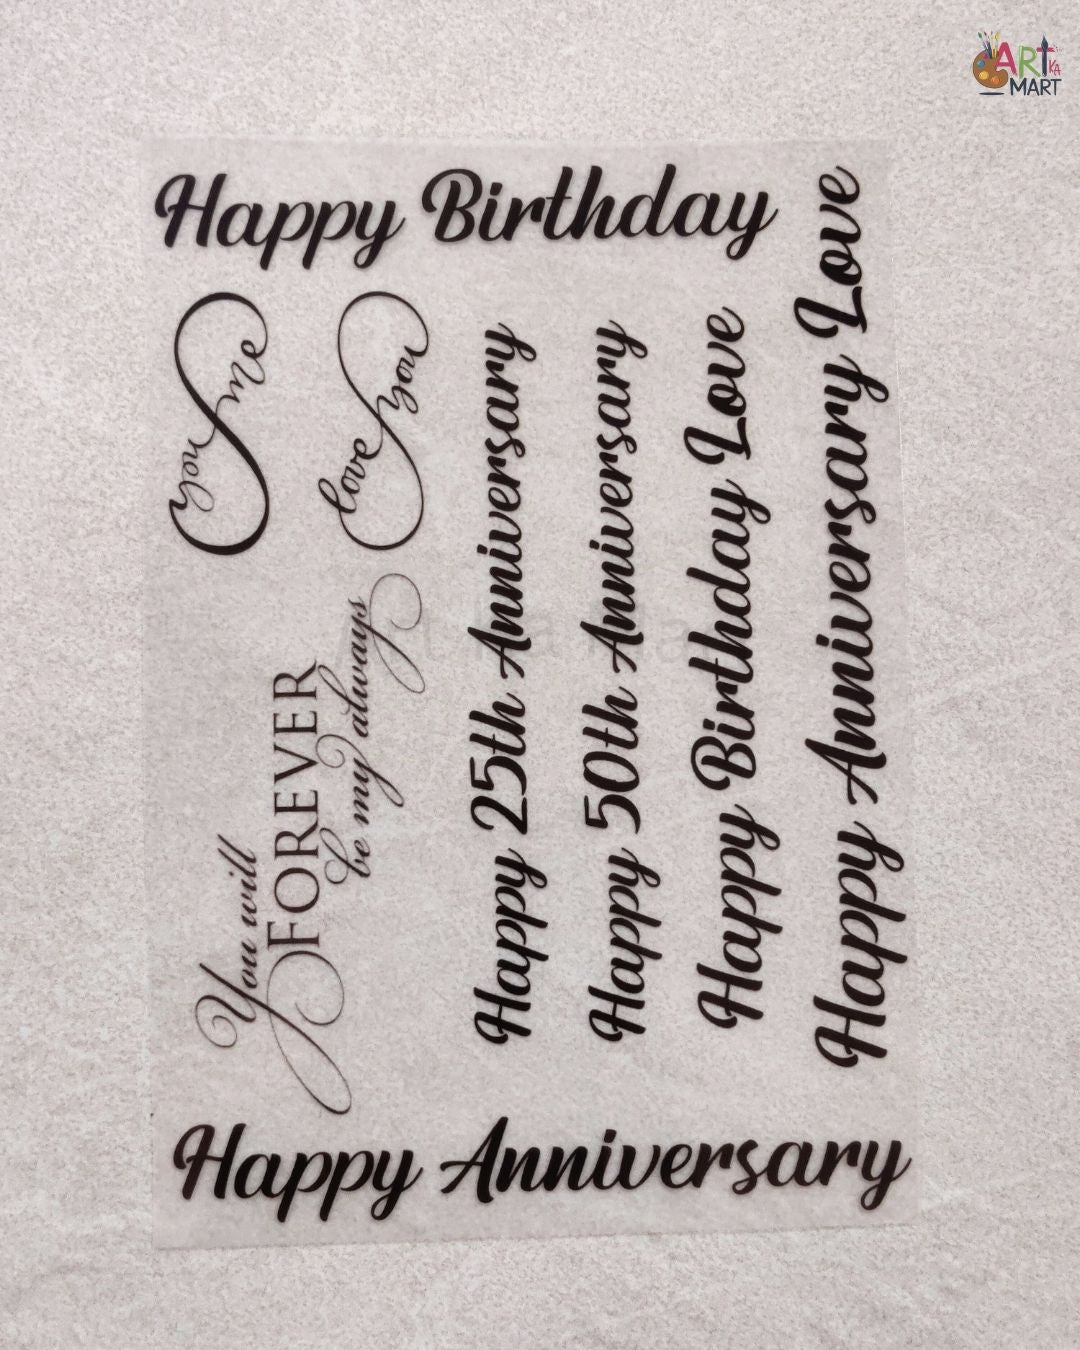 ART KA
MART
Happy Birthday
you & me
love you
You will
FOREVER
be my always
Happy 25th Anniversary
Happy 50th Anniversary
Happy Birthday Love
Happy Anniversary Love
Happy Anniversary